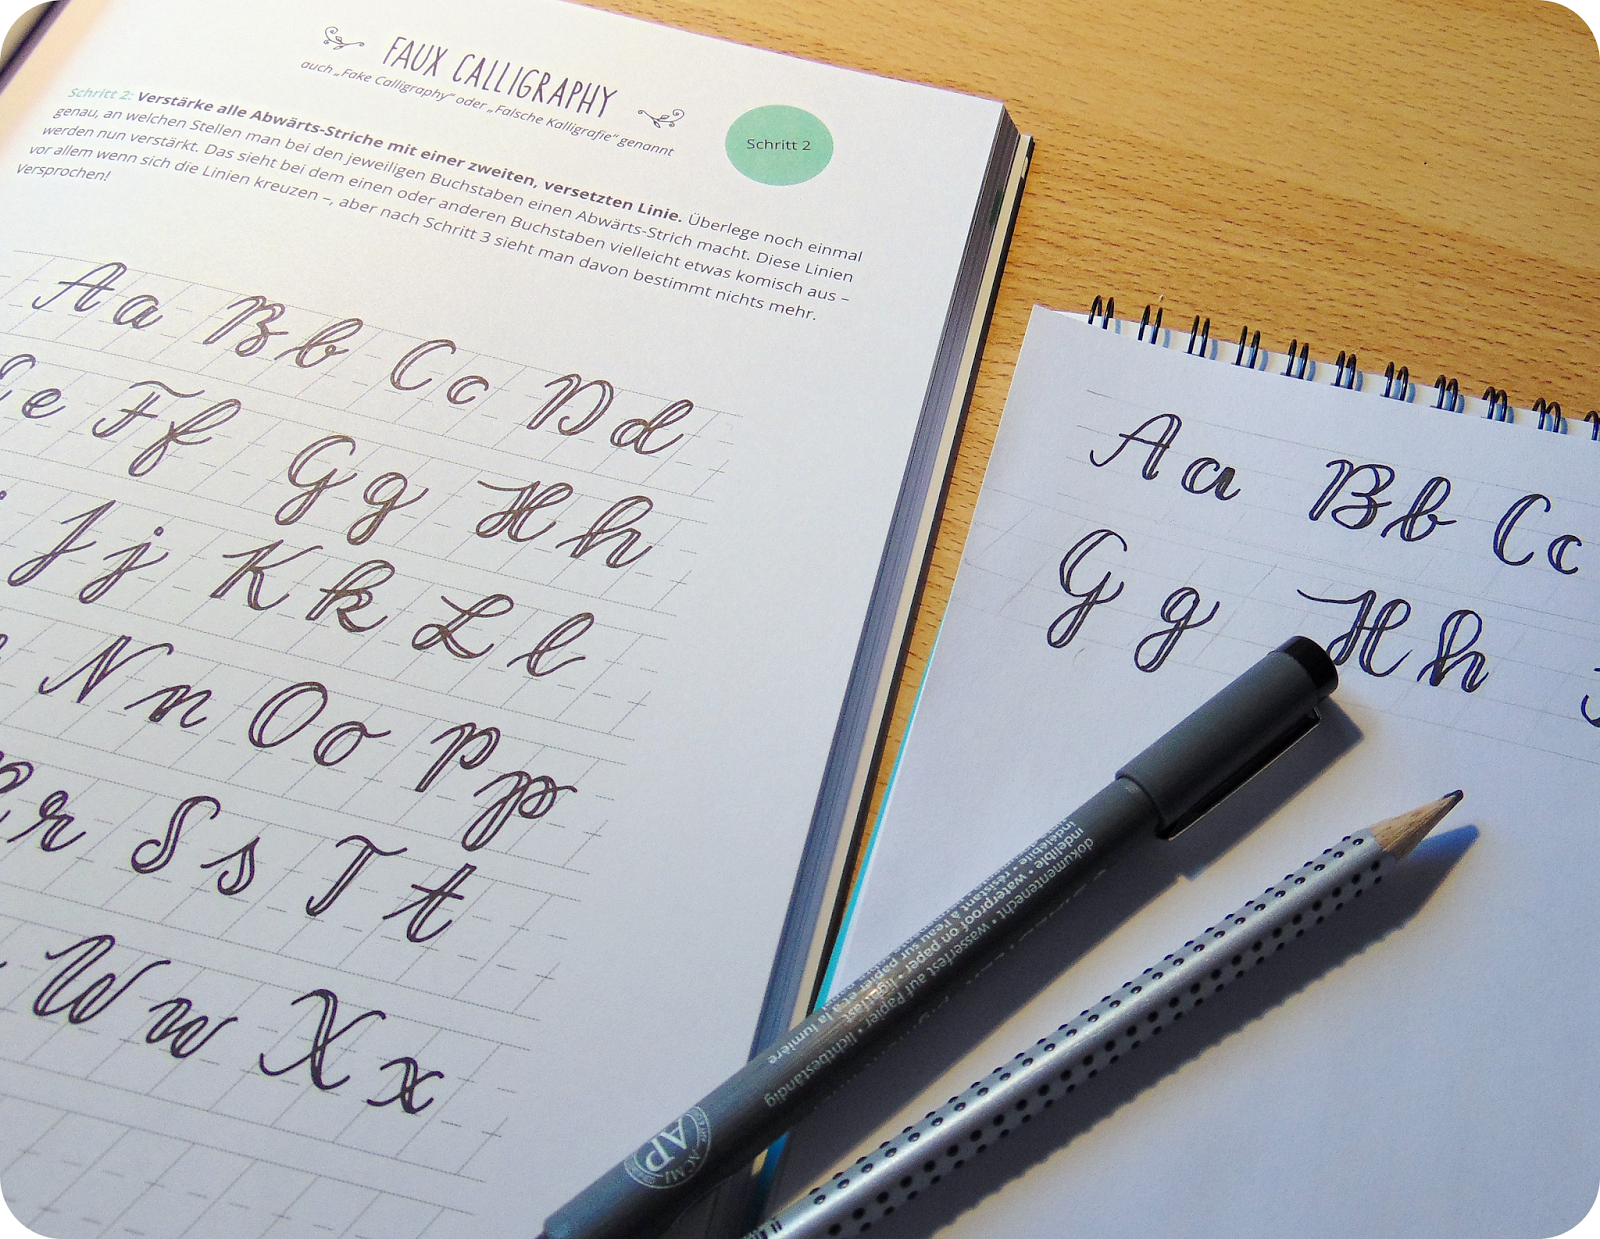 FAUX CALLIGRAPHY
auch „Fake Calligraphy“ oder „Falsche Kalligrafie“ genannt
Schritt 2
Schritt 2: Verstärke alle Abwärts-Striche mit einer zweiten, versetzten Linie. Überlege noch einmal
genau, an welchen Stellen man bei den jeweiligen Buchstaben einen Abwärts-Strich macht. Diese Linien
werden nun verstärkt. Das sieht bei dem einen oder anderen Buchstaben vielleicht etwas komisch aus –
vor allem wenn sich die Linien kreuzen –, aber nach Schritt 3 sieht man davon bestimmt nichts mehr.
Versprochen!
A a B b C c D d
E e F f G g H h
J j K k L l
N n O o P p
r S s T t
W w X x
A a B b C c
G g H h
dokumentenecht • wasserfest auf Papier • lichtbeständig
indelible • waterproof on paper • lightfast
indélébile • résistant à l'eau sur papier et à la lumière
AP
ACMI